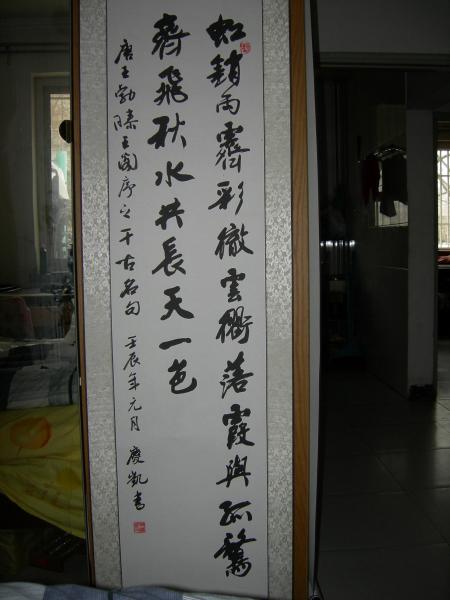 虹銷雨霽彩徹雲衢落霞與孤鶩
齊飛秋水共長天一色
唐王勃滕王閣序之千古名句 壬辰年元月 慶凱書